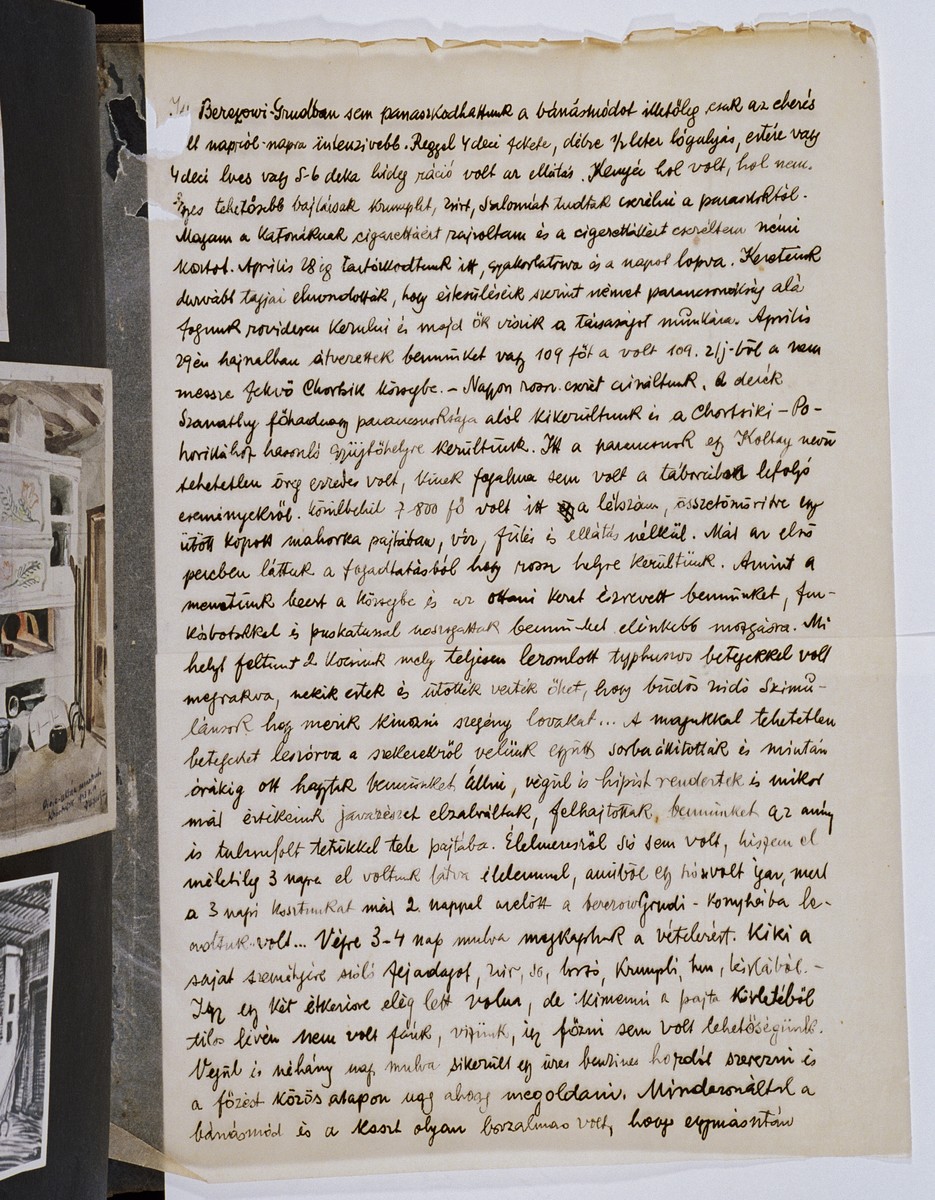 Berezowi-Grudban sem panaszkodhattunk a bánásmódot illetőleg csak az éhezés
lt napról-napra intenzivebb. Reggel 4 deci fekete, délre ½ liter lógulyás, estére vagy
4 deci leves vagy 5-6 deka hideg ráció volt az ellátás. Kenyér hol volt, hol nem.
Egyes tehetősebb bajtársak krumplit, zsirt, szalonnát tudtak cserélni a parasztoktól.
Magam a katonáknak cigarettáért rajzoltam és a cigarettákért cseréltem némi
kosztot. Április 28 ig tartózkodtunk itt, gyakorlatozva és a napot lopva. Keretünk
durvább tagjai elmondották, hogy értesüléseik szerint német parancsnokság alá
fogunk rövidesen kerülni és majd ők viszik a társaságot munkára. Április
29 én hajnalban átvezettek bennünket vagy 109 főt a volt 109. 21/j-ből a nem
messze fekvő Chortsik községbe. – Nagyon rossz cserét csináltunk. A derék
Szanathy főhadnagy parancsnoksága alól kikerültünk és a Chortsiki – Po-
horillához hasonló gyüjtőhelyre kerültünk. Itt a parancsnok egy Koltay nevü
tehetetlen öreg ezredes volt, kinek fogalma sem volt a táborában lefolyó
eseményekről. Körülbelül 7-800 fő volt itt a létszám, összetömöritve egy
ütött kopott mahorka pajtában, víz, fütés és ellátás nélkül. Már az első
percben láttuk a fogadtatásból hogy rossz helyre kerültünk. Amint a
menetünk beert a községbe és az ottani keret észrevett bennünket, fur-
kósbotokkal és puskatussal noszogattak bennünket élénkebb mozgásra. Mi
helyt feltünt 2 kocsink mely teljesen leromlott typhuszos betegekkel volt
megrakva, nekik estek és ütötték verték őket, hogy büdös zsidó szimu-
lánsok hogy merik kinozni szegény lovakat... A magukkal tehetetlen
betegeket leszórva a szekerekről velünk együtt sorbaállitották és miután
órákig ott hagytak bennünket állni, végül is hipist rendeztek és mikor
már értékeink javarészét elzabrálták, felhajtottak bennünket az amugy
is tulzsufolt tetükkel tele pajtába. Élelmezésről szó sem volt, hiszen el
méletileg 3 napra el voltunk látva élelemmel, amiből egy szó volt igaz, mert
a 3 napi kosztunkat már 2 nappal azelőtt a berezowGrudi - konyhába le-
adtuk volt... Végre 3-4 nap mulva megkaptuk a vételezést. Kiki a
saját személyére szóló fejadagot, zsir, só, borsó, krumpli, hus, lóvágásból. –
Igy egy két étkezésre elég lett volna, de kimenni a pajta kivletéből
tilos lévén nem volt fánk, vizünk, igy főzni sem volt lehetőségünk.
Végül is néhány nap mulva sikerült egy üres benzines hordót szerezni és
a főzést közös alapon ugy ahogy megoldani. Mindazonáltal a
bánásmód és a koszt olyan borzalmas volt, hogy egymásután